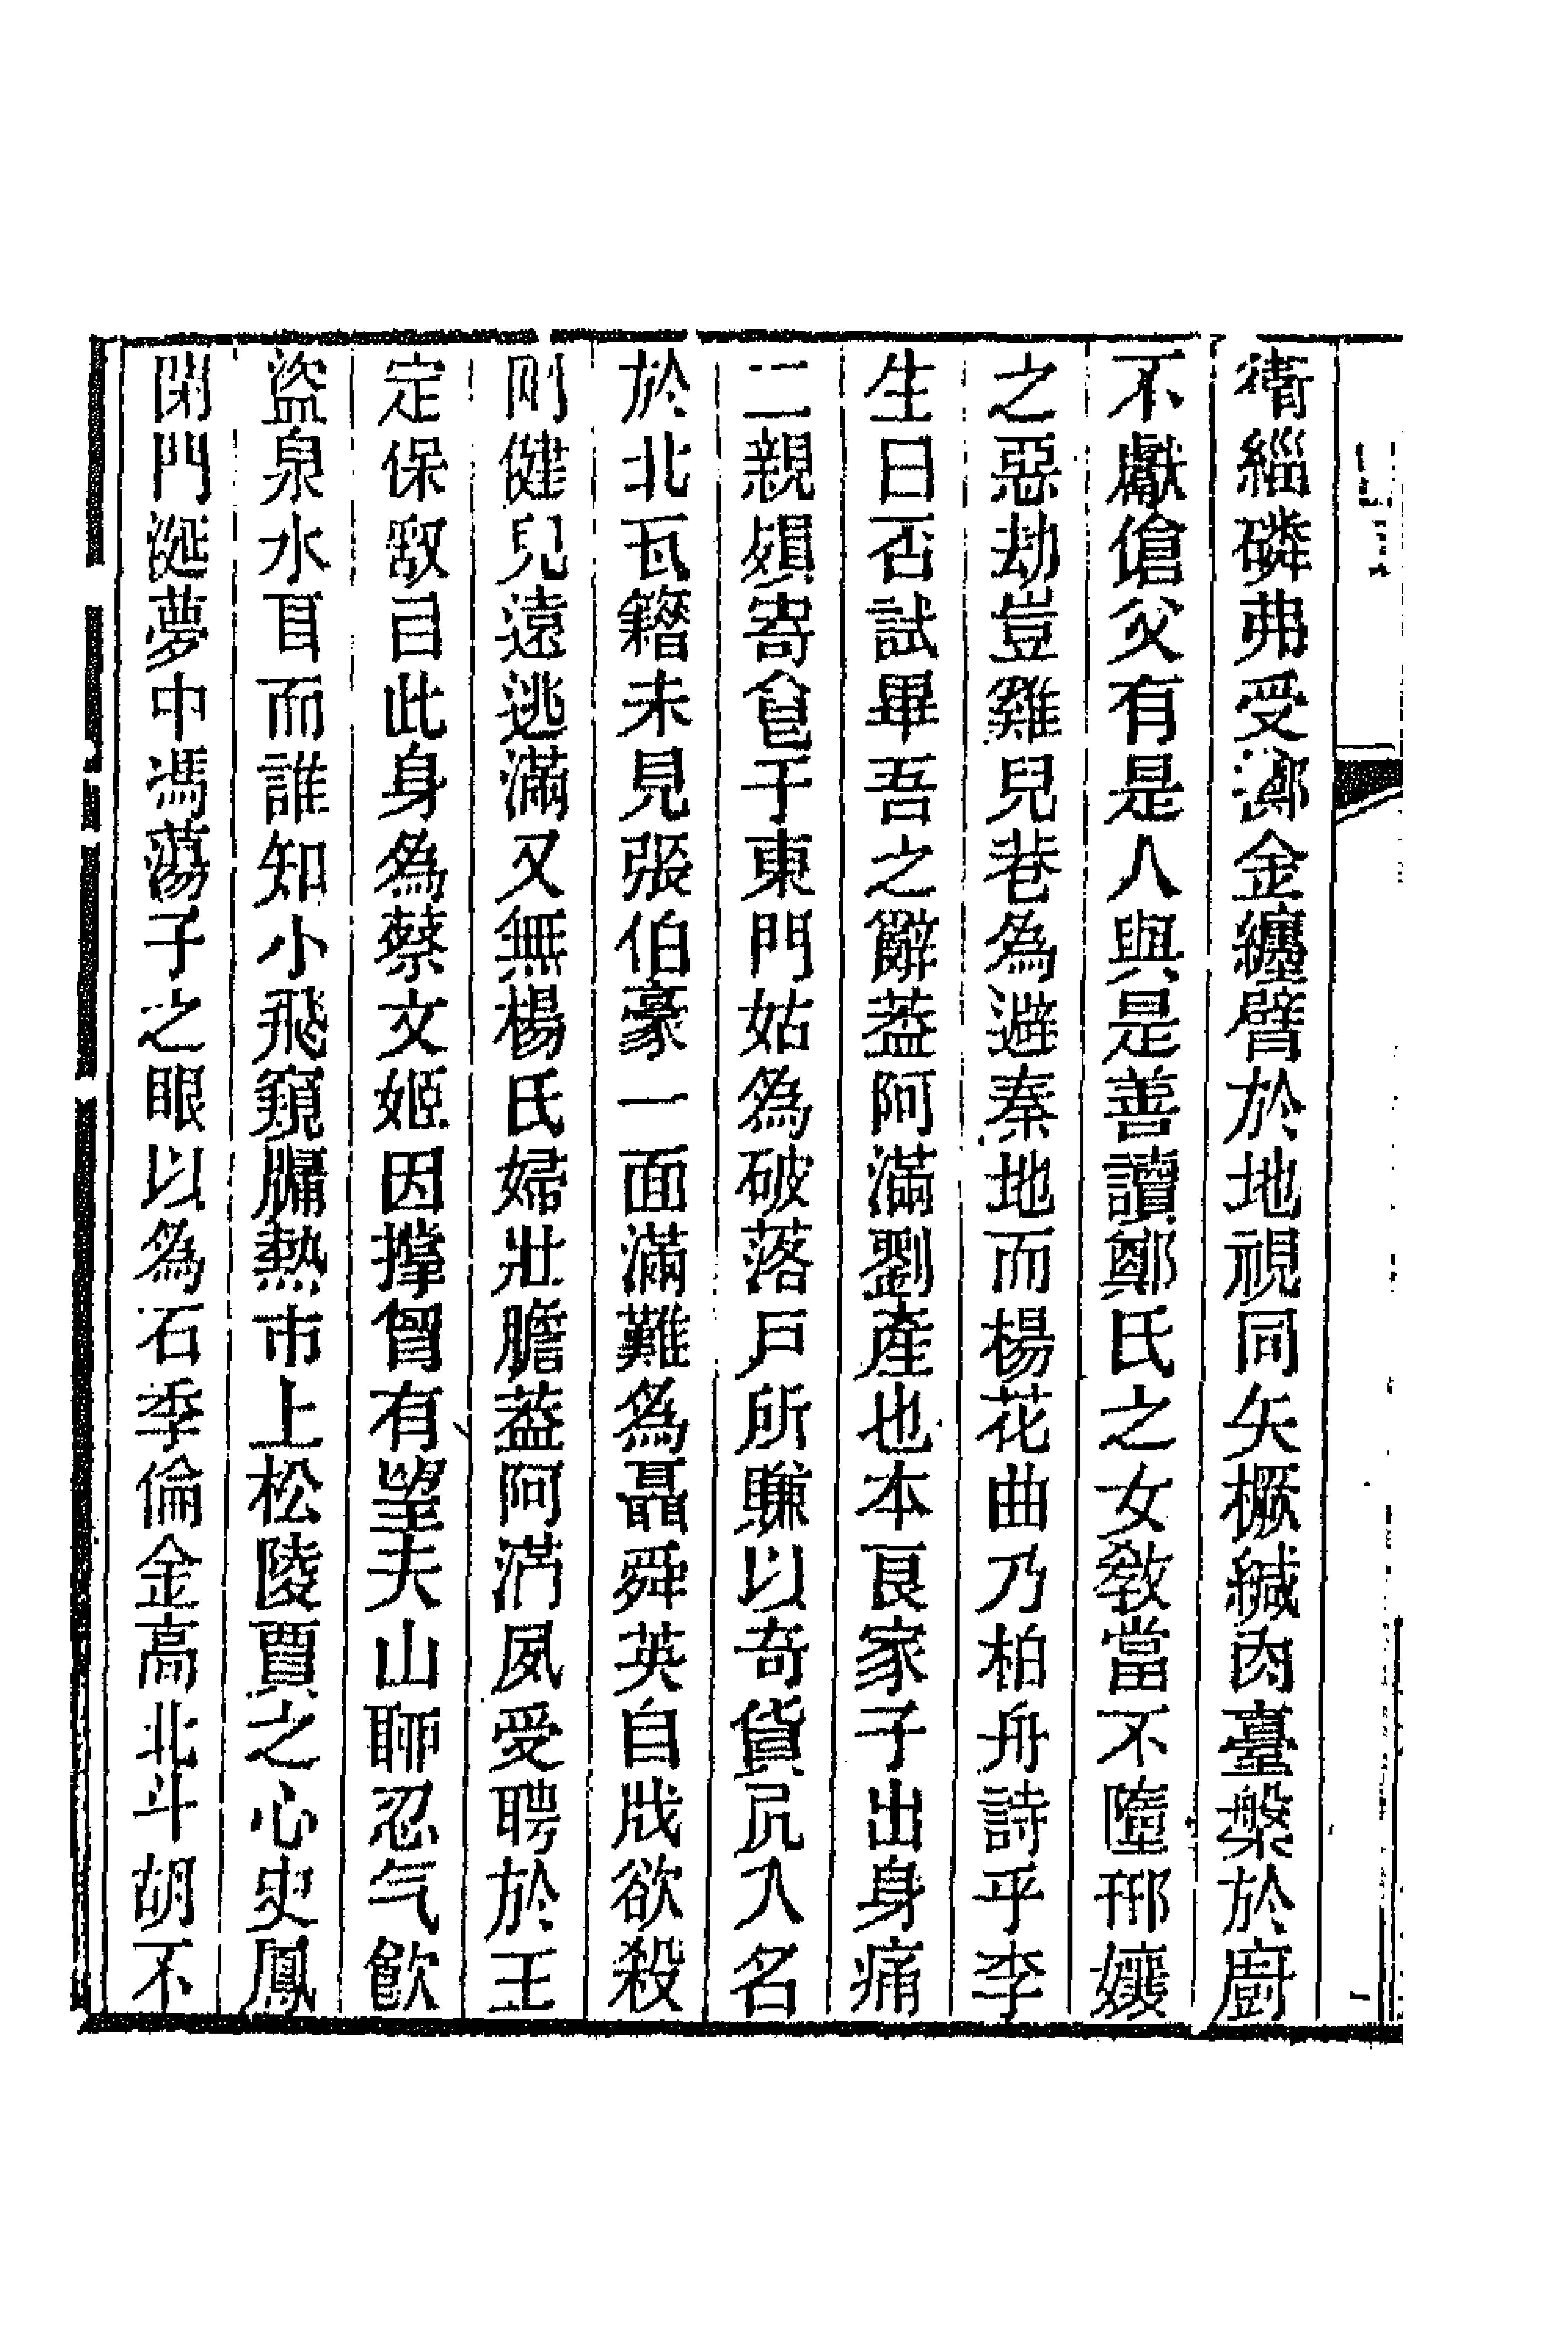 緇磷弗受擲金纏臂於地視同矢橛緘肉臺槃於廚
不獻傖父有是人與是善讀鄭氏之女教當不墮邗孃
之惡劫豈雞兒巷為避秦地而楊花曲乃柏舟詩乎李
生曰否試畢吾之辭葢阿滿劉產也本良家子出身痛
二親殞寄食于東門姑為破落戶所賺以奇貨凥入名
於北瓦籍未見張伯豪一面滿難為聶舜英自戕欲殺
則健兒遠逃滿又無楊氏婦壯膽葢阿滿夙受聘於王
定保敢目此身為蔡文姬因撑曾有望夫山聊忍气飮
盜泉水耳而誰知小飛窺牖熱市上松陵賈之心史鳳
閉門涎夢中馮蕩子之眼以為石季倫金高北斗胡不